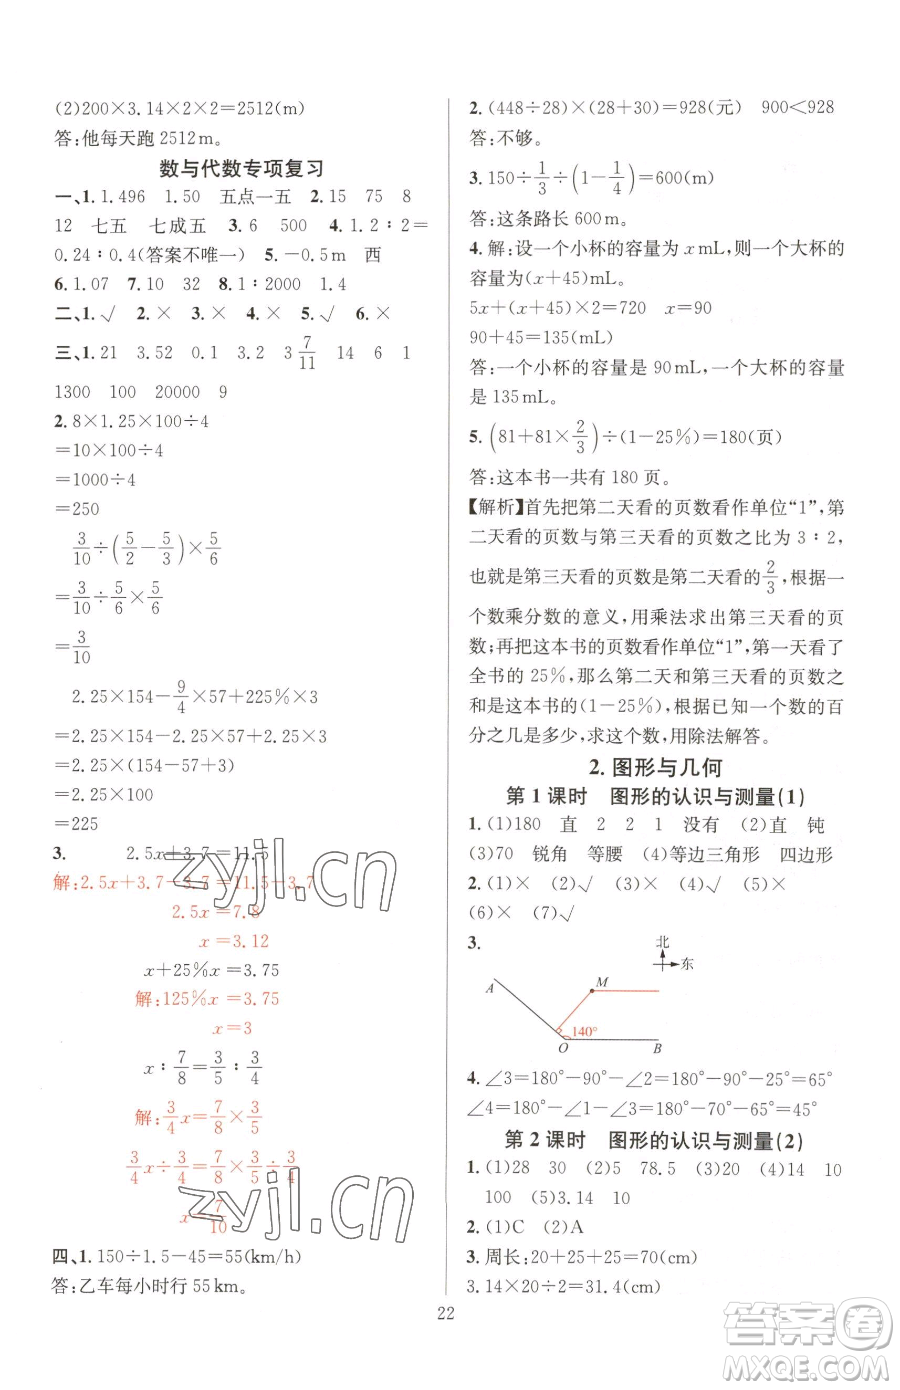 (2)200×3.14×2×2=2512(m)
答:他每天跑 2512 m。
数与代数专项复习
一、1. 1.496 1.50 五点一五 2. 15 75 8
12 七五 七成五 3. 6 500 4. 1.2∶2=
0.24∶0.4(答案不唯一) 5. -0.5 m 西
6. 1.07 7. 10 32 8. 1∶2000 1.4
二、1. √ 2. × 3. × 4. × 5. √ 6. ×
三、1. 21 3.52 0.1 3.2 3 7/11 14 6 1
1300 100 20000 9
2. 8×1.25×100÷4
=10×100÷4
=1000÷4
=250
3/10÷(5/2-5/3)×5/6
=3/10÷5/6×5/6
=3/10
2.25×154-9/4×57+225%×3
=2.25×154-2.25×57+2.25×3
=2.25×(154-57+3)
=2.25×100
=225
3. 2.5x+3.7=11.5
解:2.5x+3.7-3.7=11.5-3.7
2.5x=7.8
x=3.12
x+25%x=3.75
解:125%x=3.75
x=3
x∶7/8=3/5∶3/4
解:3/4x=7/8×3/5
3/4x÷3/4=7/8×3/5÷3/4
x=7/10
四、1. 150÷1.5-45=55(km/h)
答:乙车每小时行 55 km。
2. (448÷28)×(28+30)=928(元) 900<928
答:不够。
3. 150÷1/3÷(1-1/4)=600(m)
答:这条路长 600 m。
4. 解:设一个小杯的容量为 x mL,则一个大杯的
容量为(x+45)mL。
5x+(x+45)×2=720 x=90
90+45=135(mL)
答:一个小杯的容量是 90 mL,一个大杯的容量
是 135 mL。
5. (81+81×2/3)÷(1-25%)=180(页)
答:这本书一共有 180 页。
【解析】首先把第二天看的页数看作单位“1”,第
二天看的页数与第三天看的页数之比为 3∶2,
也就是第三天看的页数是第二天看的2/3,根据一
个数乘分数的意义,用乘法求出第三天看的页
数;再把这本书的页数看作单位“1”,第一天看了
全书的 25%,那么第二天和第三天看的页数之
和是这本书的(1-25%),根据已知一个数的百
分之几是多少,求这个数,用除法解答。
2. 图形与几何
第 1 课时 图形的认识与测量(1)
1. (1)180 直 2 2 1 没有 (2)直 钝
(3)70 锐角 等腰 (4)等边三角形 四边形
2. (1)× (2)√ (3)√ (4)× (5)×
(6)× (7)√
3.
北
东
A
M
140°
O
B
4. ∠3=180°-90°-∠2=180°-90°-25°=65°
∠4=180°-∠3-∠1=180°-70°-65°=45°
第 2 课时 图形的认识与测量(2)
1. (1)28 30 (2)5 78.5 (3)20 (4)14 10
100 (5)3.14 10
2. (1)C (2)A
3. 周长:20+25+25=70(cm)
3.14×20÷2=31.4(cm)
22
zyjl.cn
zyjl.cn
答案圈
MXQE.COM